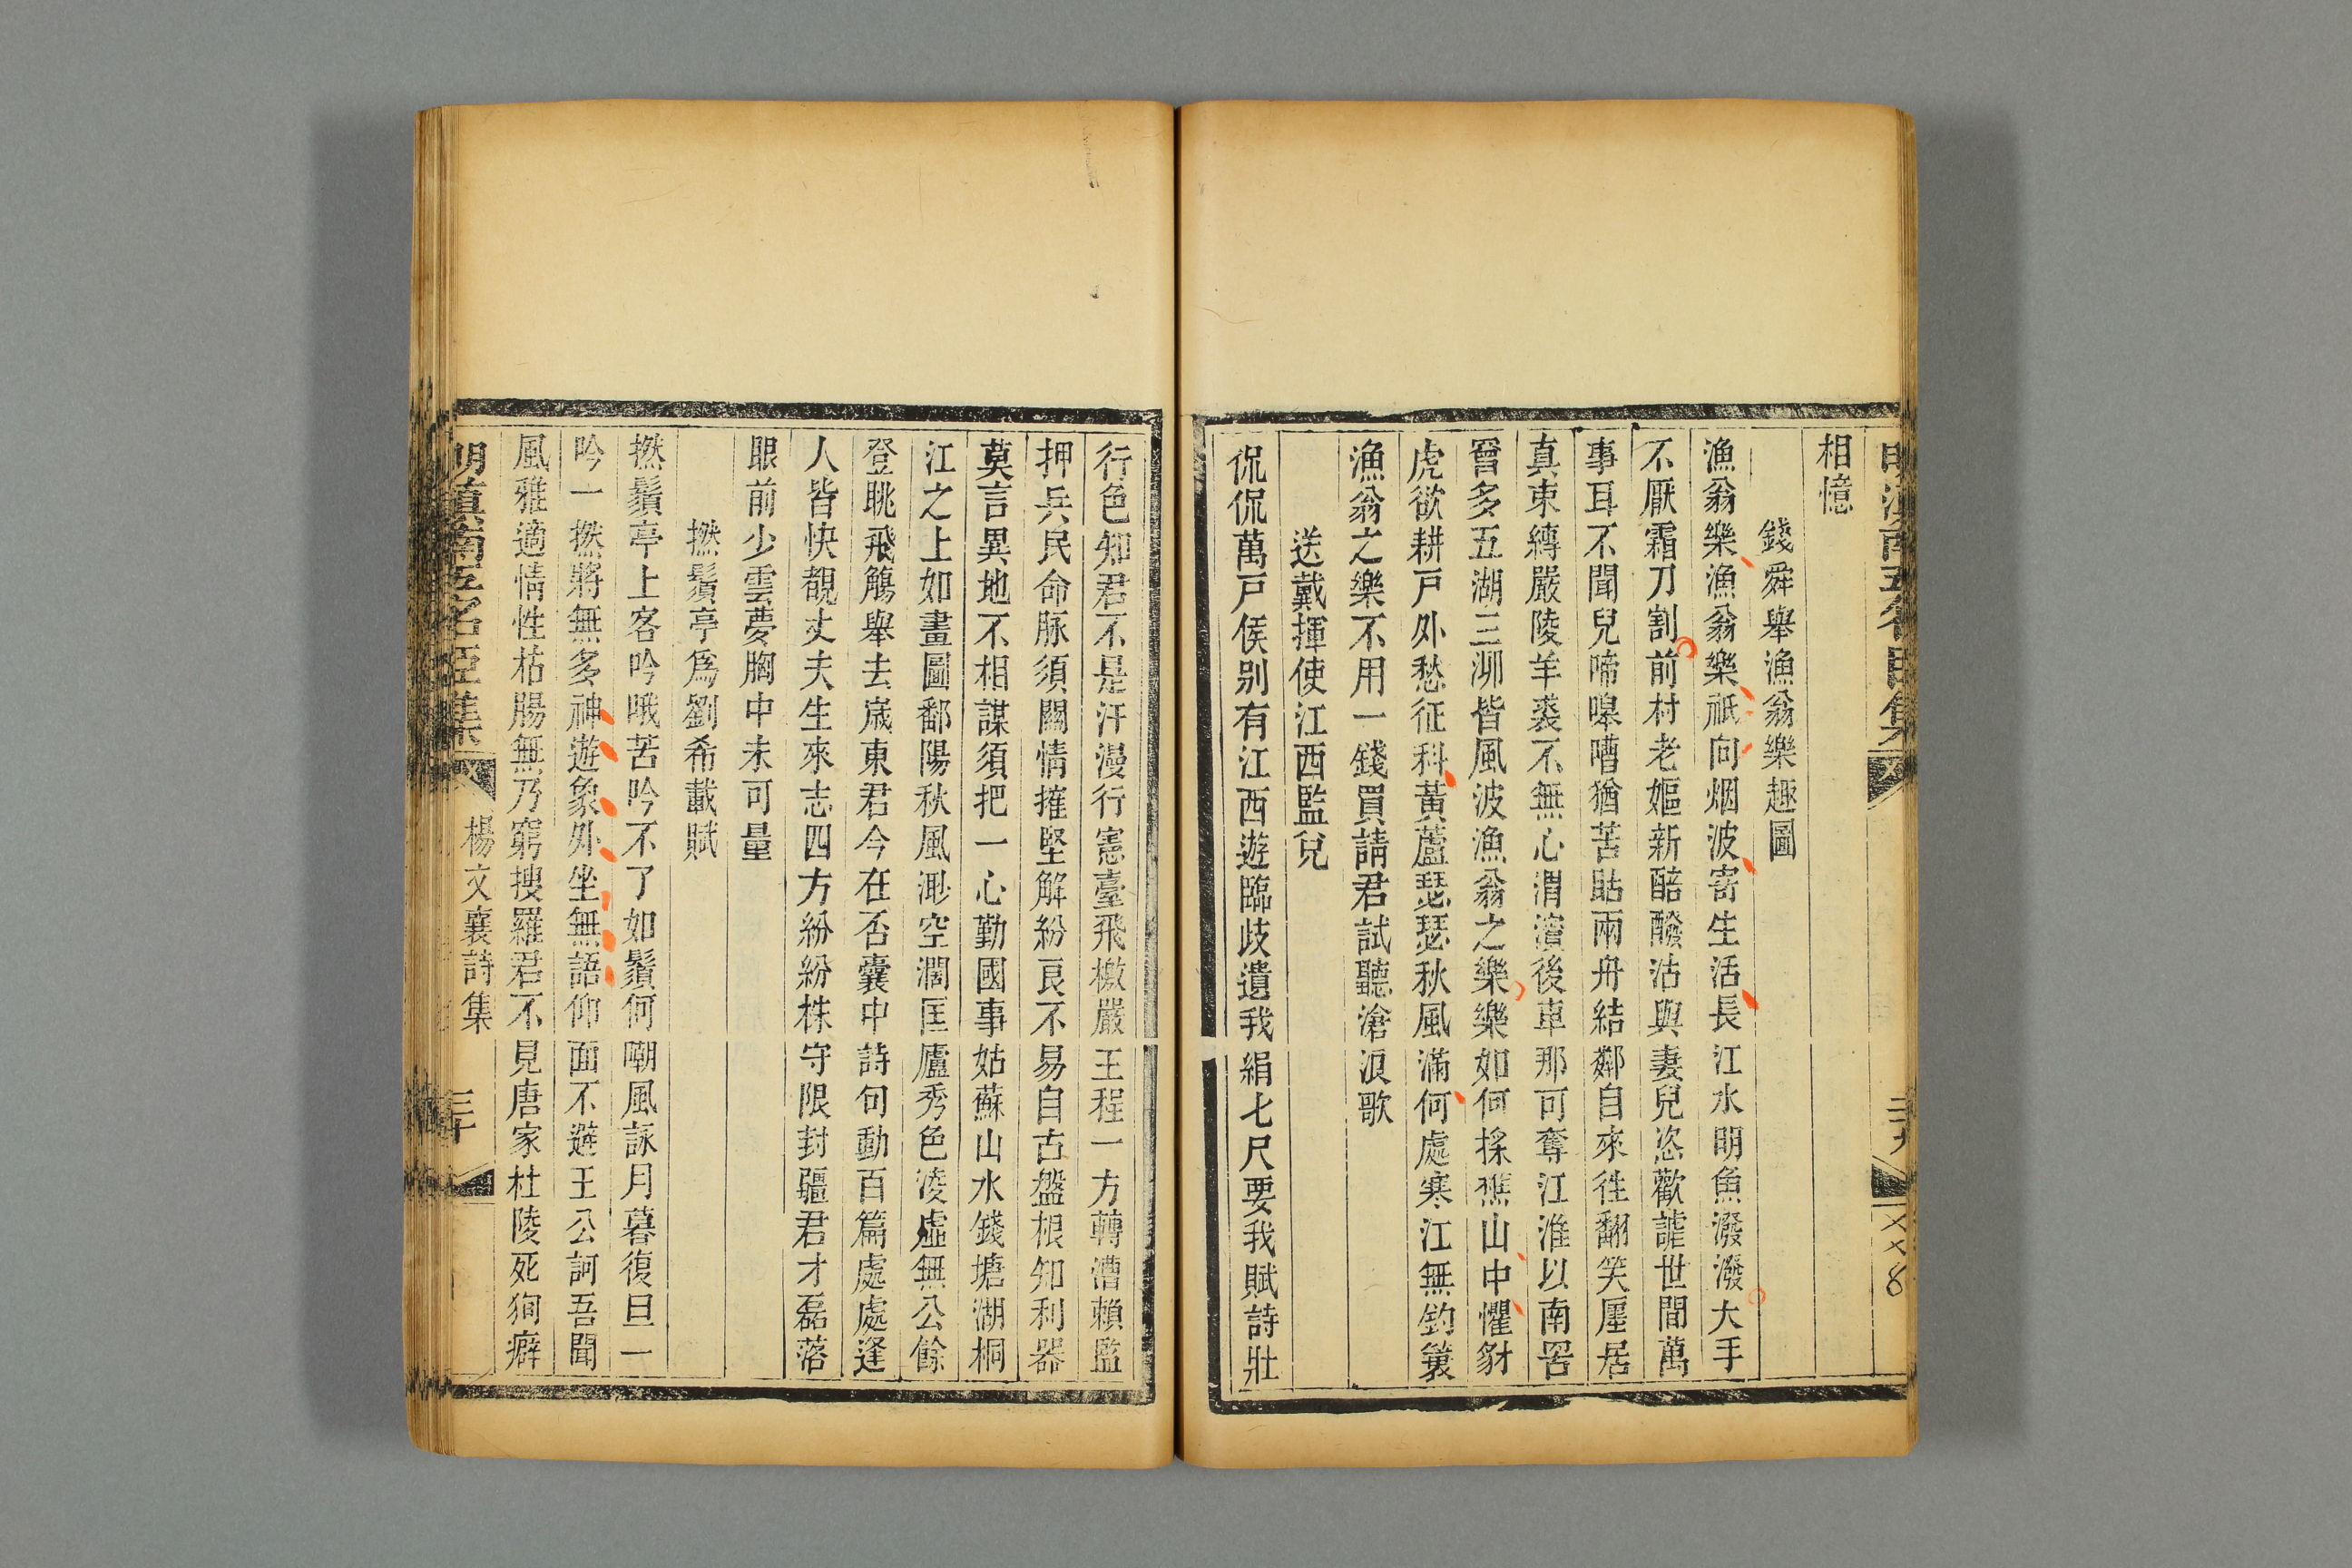 相憶
錢舜舉漁翁樂趣圖
漁翁樂漁翁樂祇向烟波寄生活長江水明魚潑潑大手
不厭霜刀割前村老嫗新醅醱沽與妻兒恣歡謔世間萬
事耳不聞兒啼嘷嘈猶苦聒兩舟結鄰自來徃翻笑廛居
真束縛嚴陵羊裘不無心渭濵後車那可奪江淮以南罟
罾多五湖三泖皆風波漁翁之樂樂如何採樵山中懼豺
虎欲耕戸外愁征科黃蘆瑟瑟秋風滿何處寒江無釣簑
漁翁之樂不用一錢買請君試聽滄浪歌
送戴揮使江西監兌
侃侃萬戸侯别有江西遊臨歧遺我絹七尺要我賦詩壯
行色知君不是汗漫行憲臺飛檄嚴王程一方轉漕賴監
押兵民命脉須關情摧堅解紛良不易自古盤根知利器
莫言異地不相謀須把一心勤國事姑蘇山水錢塘湖桐
江之上如畫圖鄱陽秋風渺空濶匡廬秀色淩虛無公餘
登眺飛觴舉去歲東君今在否囊中詩句動百篇處處逢
人皆快覩丈夫生來志四方紛紛株守限封疆君才磊落
眼前少雲夢胸中未可量
撚鬚亭爲劉希載賦
撚鬚亭上客吟哦苦吟不了如鬚何嘲風詠月暮復旦一
吟一撚將無多神遊象外坐無語仰面不避王公訶吾聞
風雅適情性枯腸無乃窮搜羅君不見唐家杜陵死狥癖
明滇南五名臣集 楊文襄詩集 三十